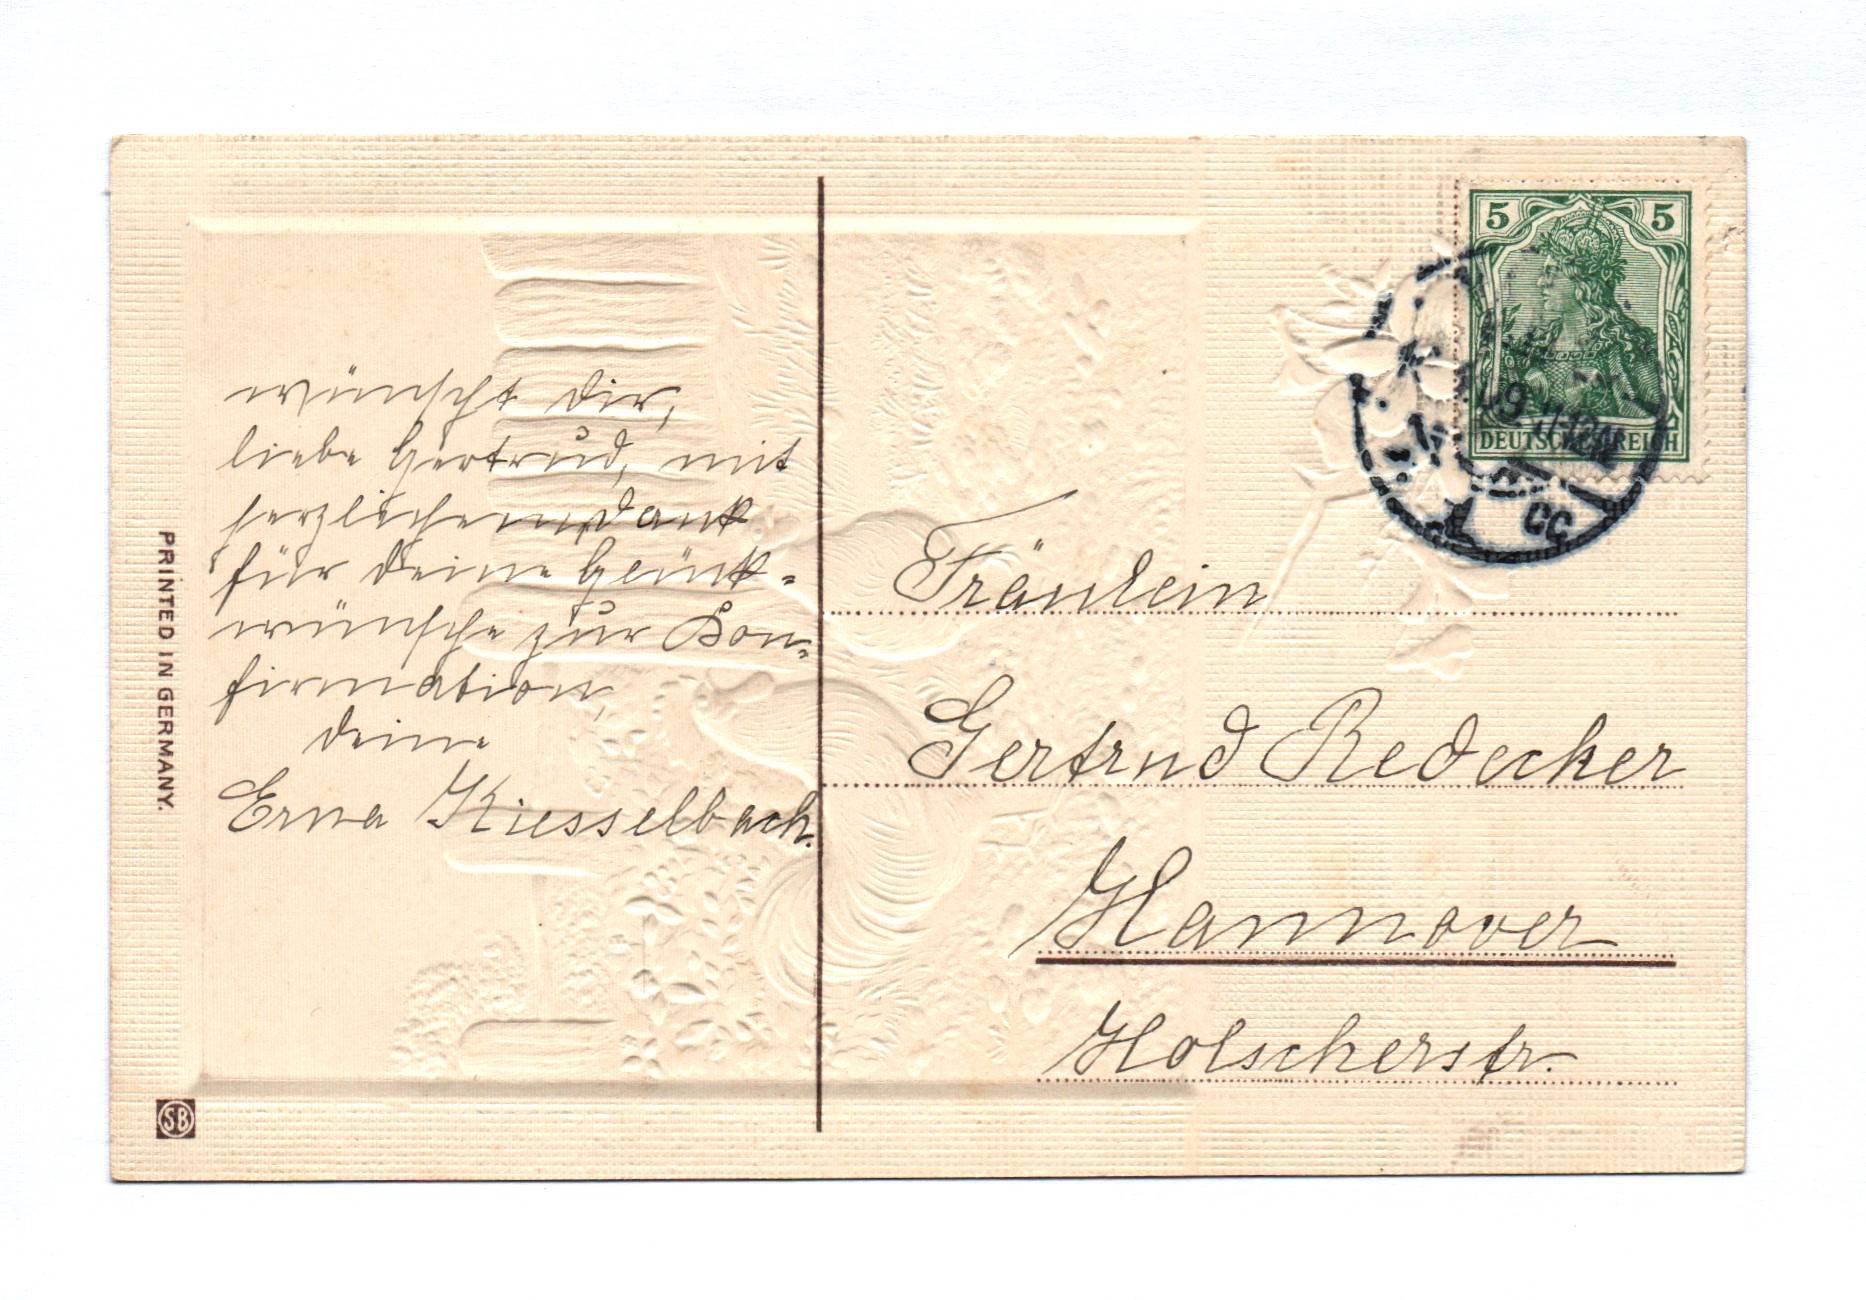 wünscht dir,
liebe Gertrud, mit
herzlichem Dank
für deine Glück-
wünsche zur Kon-
firmation,
deine
Erna Kiesselbach.
PRINTED IN GERMANY.
SB
5 5
DEUTSCHES REICH
Fräulein
Gertrud Redecker
Hannover
Holscherstr.